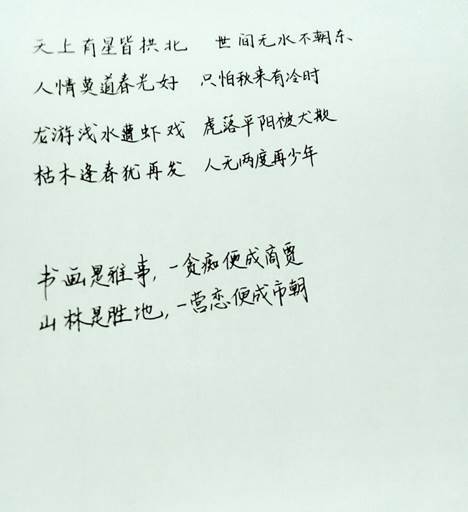 天上有星皆拱北 世间无水不朝东
人情莫道春光好 只怕秋来有冷时
龙游浅水遭虾戏 虎落平阳被犬欺
枯木逢春犹再发 人无两度再少年
书画是雅事，一贪痴便成商贾
山林是胜地，一营恋便成市朝